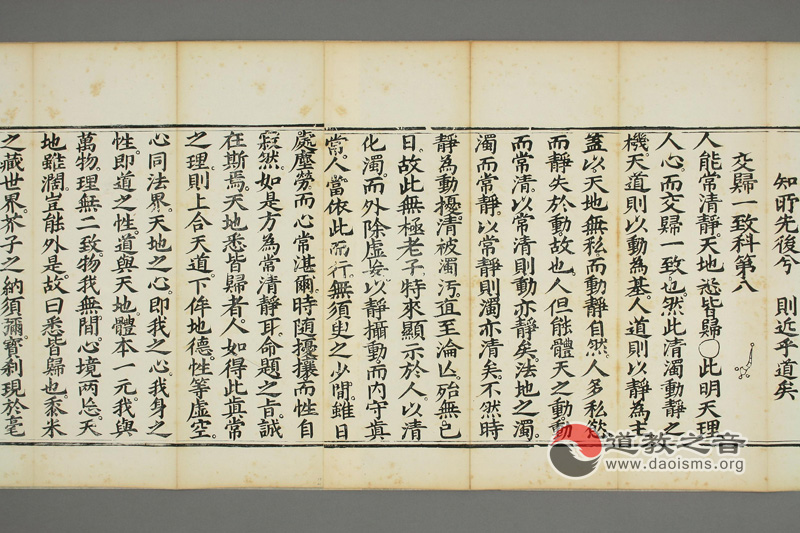 知所先後兮　則近乎道矣
交歸一致科第八
人能常清靜天地悉皆歸○此明天理
人心而交歸一致也然此清濁動靜之
機天道則以動為基人道則以靜為主
蓋以天地無私而動靜自然人多私慾
而靜失於動故也人但能體天之動動
而常清以常清則動亦靜矣法地之濁
濁而常靜以常靜則濁亦清矣不然時
靜為動擾清被濁汚直至淪亾殆無已
日故此無極老子特來顯示於人以清
化濁而外除虛妄以靜攝動而內守真
常人當依此而行無須臾之少間雖日
處塵勞而心常湛爾時隨擾攘而性自
寂然如是方為常清靜耳命題之旨誠
在斯焉天地悉皆歸者人如得此真常
之理則上合天道下侔地德性等虛空
心同法界天地之心即我之心我身之
性即道之性道與天地體本一元我與
萬物理無二致物我無間心境两忘天
地雖濶豈能外是故曰悉皆歸也黍米
之藏世界芥子之納須彌寶剎現於毫
道教之音
www.daoisms.org